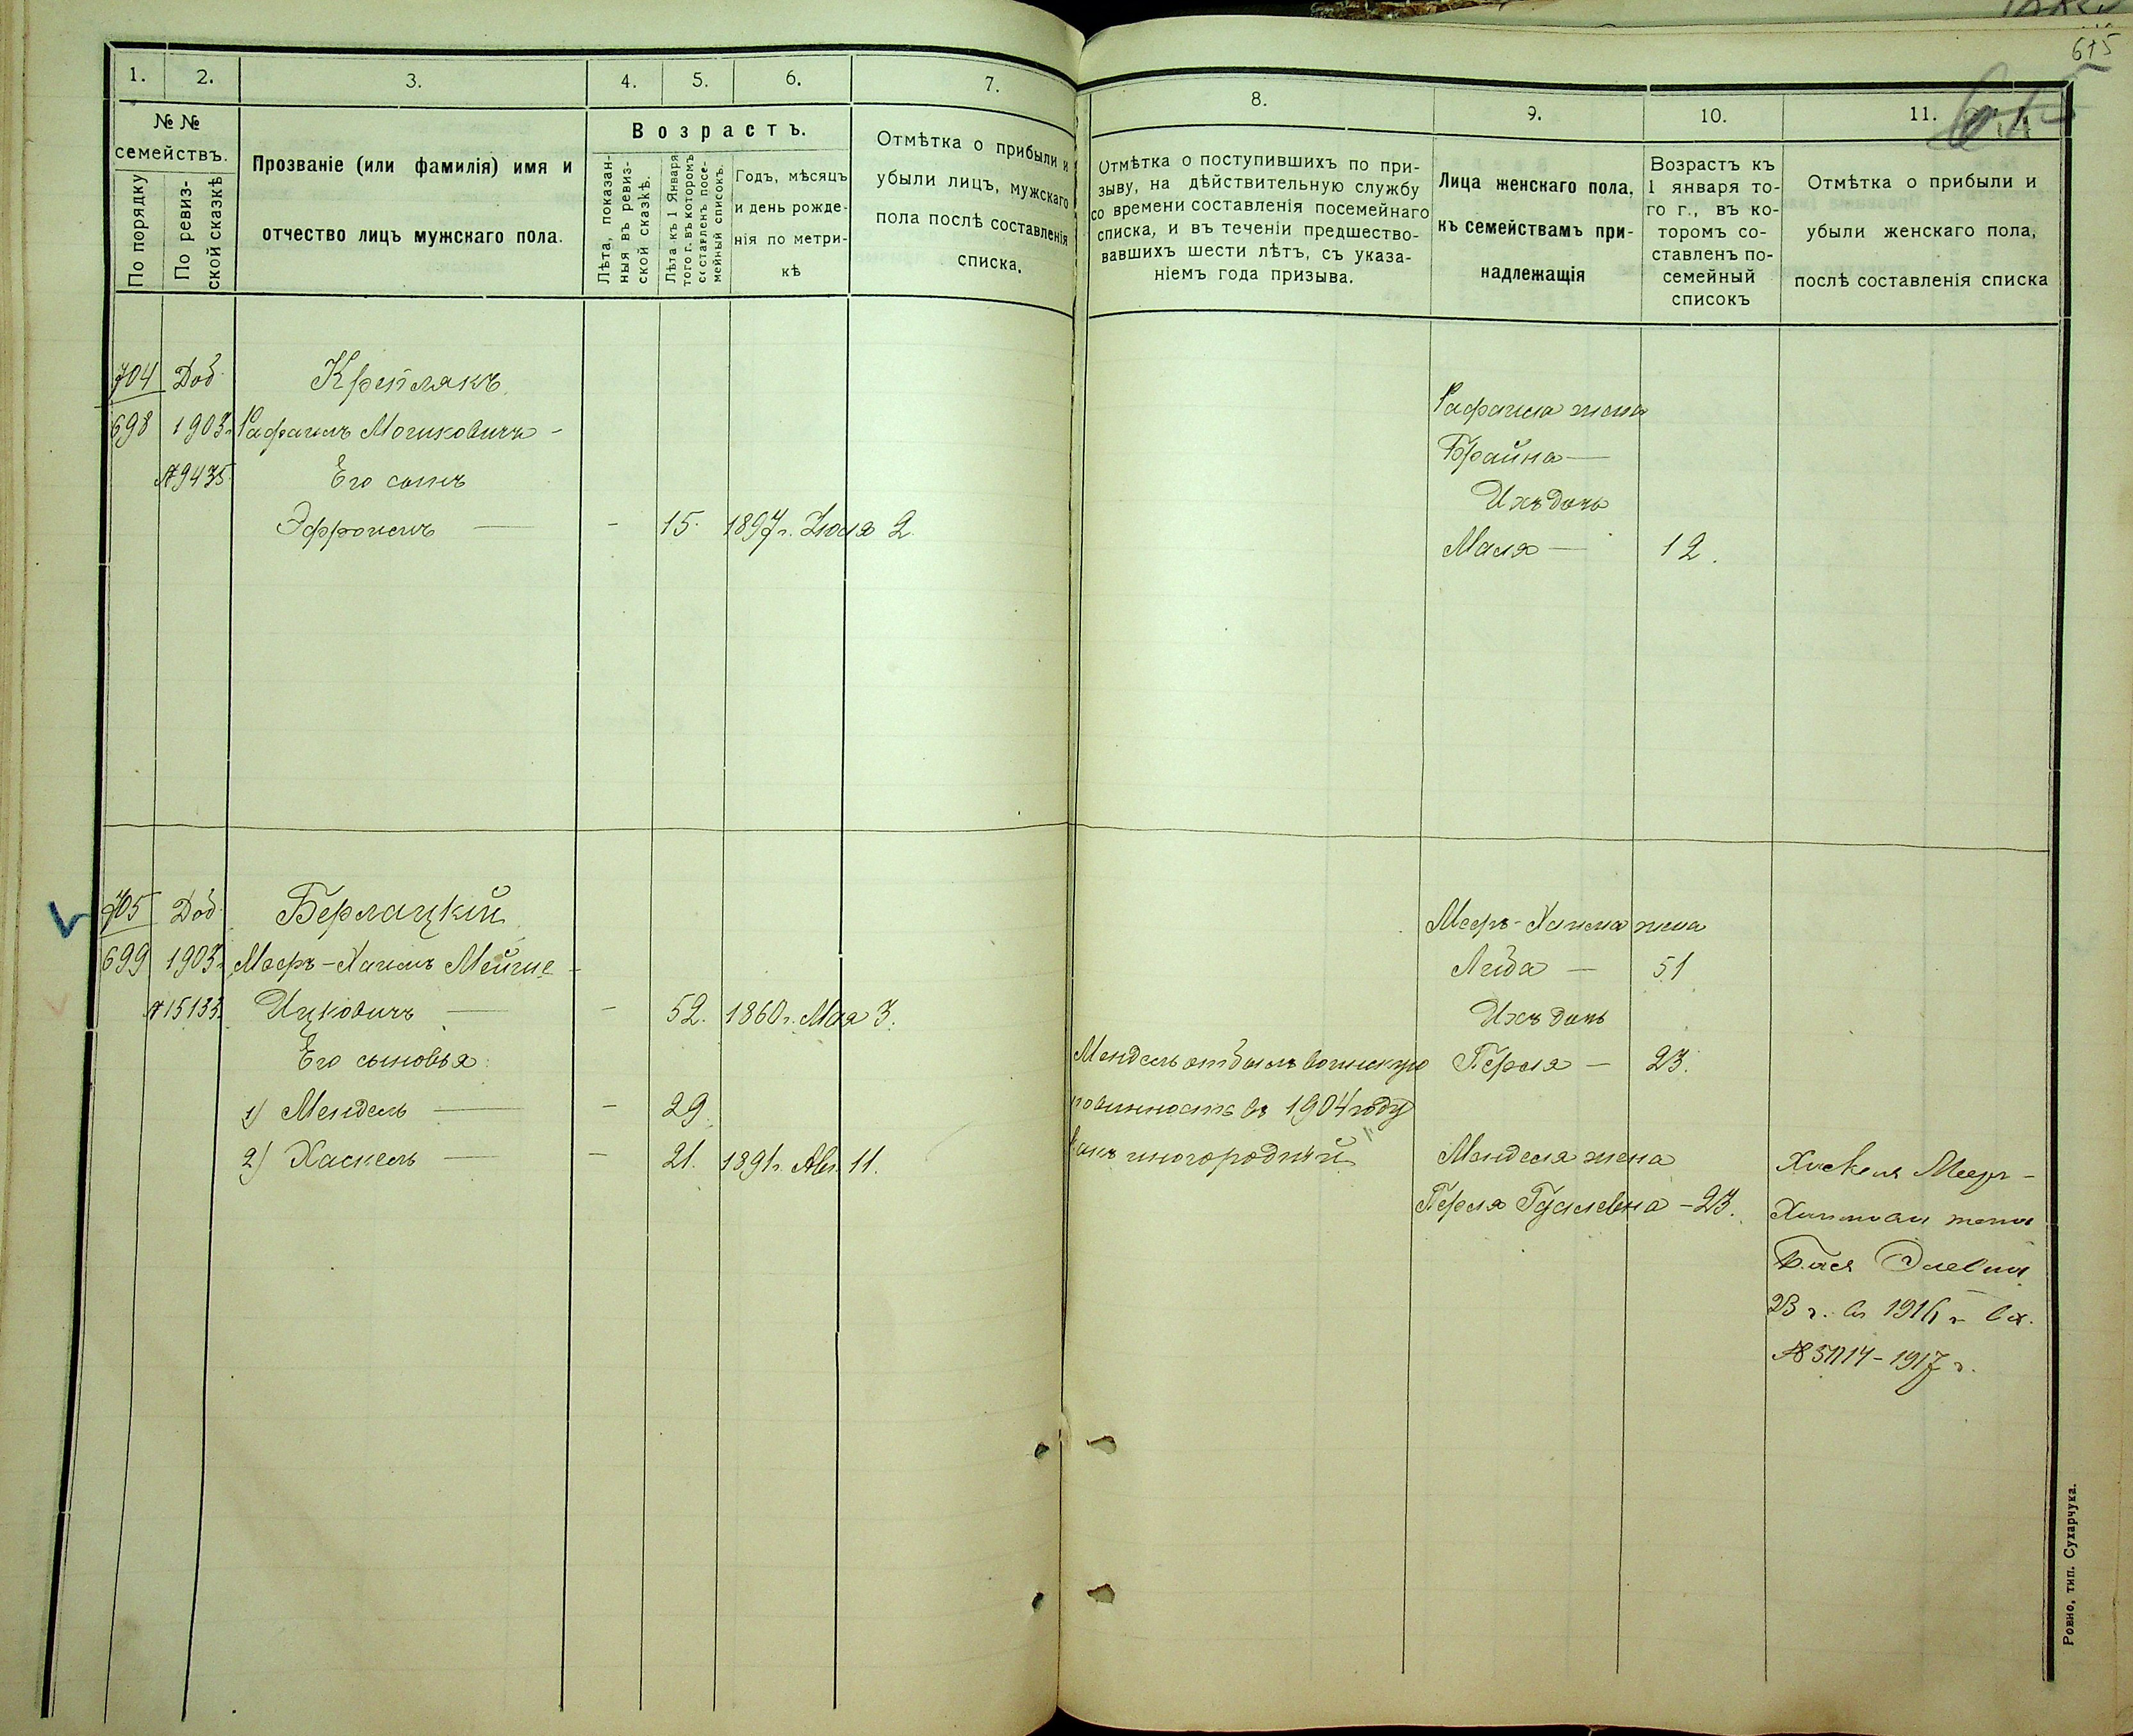 615
1. 2. 3. 4. 5. 6. 7.
№ №
семействъ.
По порядку
По ревиз-
ской сказкѣ
Прозваніе (или фамилія) имя и
отчество лицъ мужскаго пола.
Возрастъ.
Лѣта, показан-
ныя въ ревиз-
ской сказкѣ.
Лѣта къ 1 Января
того г. въ которомъ
составленъ посе-
мейный списокъ.
Годъ, мѣсяцъ
и день рожде-
нія по метри-
кѣ
Отмѣтка о прибыли и
убыли лицъ, мужскаго
пола послѣ составленія
списка.
704 Доб. Крепլякъ
698 1903г. Рафаилъ Мошковичъ -
№9435 Его сынъ
Эффроимъ — - 15. 1897 г. Іюля 2.
705 Доб. Берлацкій
699 1903г. Мееръ-Хаимъ Мейше -
№15133. Ицковичъ — - 52. 1860 г. Мая 3.
Его сыновья:
1) Мендель — - 29.
2) Хаскель — - 21. 1891 г. Авг. 11.
8. 9. 10. 11.
Отмѣтка о поступившихъ по при-
зыву, на дѣйствительную службу
со времени составленія посемейнаго
списка, и въ теченіи предшество-
вавшихъ шести лѣтъ, съ указа-
ніемъ года призыва.
Лица женскаго пола,
къ семействамъ при-
надлежащія
Возрастъ къ
1 января то-
го г., въ ко-
торомъ со-
ставленъ по-
семейный
списокъ
Отмѣтка о прибыли и
убыли женскаго пола,
послѣ составленія списка
Рафаила жена
Брайна —
Ихъ дочь
Маля — 12.
Мееръ-Хаима жена
Либа — 51
Ихъ дочь
Мендель отбылъ воинскую Перля — 23.
повинность въ 1904 году
какъ иногородній Менделя жена
Перля Гуслевна - 23.
Хаскеля Мееръ-
Хаимова жена
Бася Элевна
23 г. въ 1916 г. вх.
№ 1714 - 1917 г.
Ровно, тип. Сухарчука.